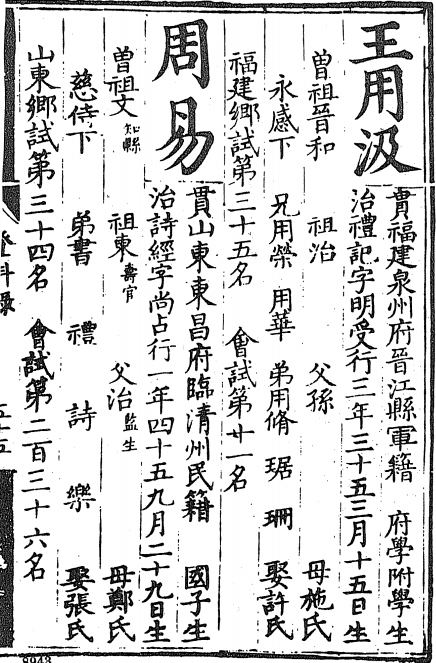 王用汲
貫福建泉州府晉江縣軍籍 府學附學生
治禮記字明受行三年三十五三月十五日生
曾祖晉和 祖治 父孫 母施氏
永感下 兄用榮 用華 弟用脩 琚 珊 娶許氏
福建鄉試第三十五名 會試第廿一名
周易
貫山東東昌府臨清州民籍 國子生
治詩經字尚占行一年四十五九月二十九日生
曾祖文知縣 祖東壽官 父治監生 母鄭氏
慈侍下 弟書 禮 詩 樂 娶張氏
山東鄉試第三十四名 會試第二百三十六名
登科錄
五十五
8943